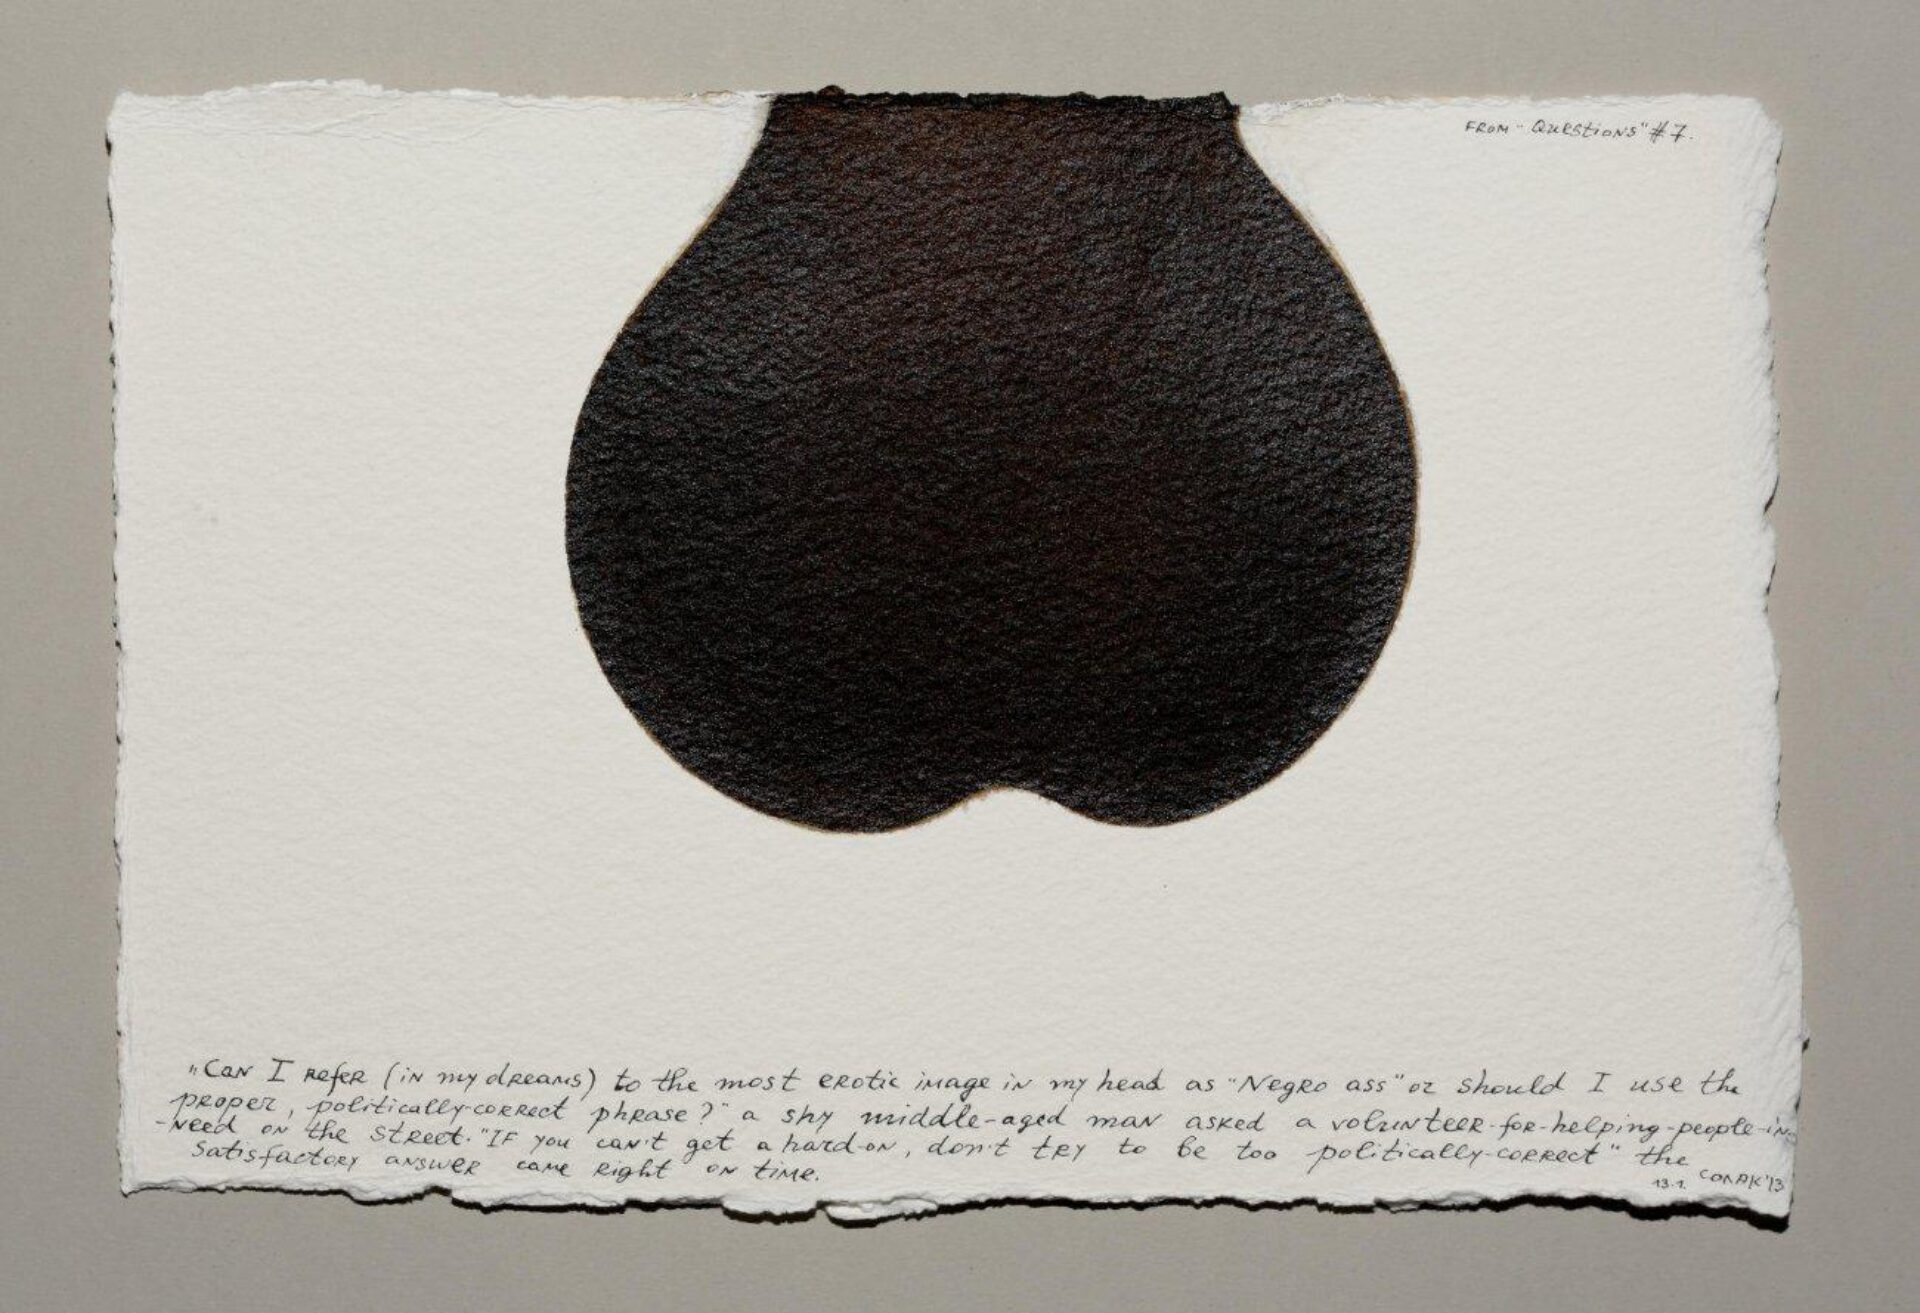 FROM "QUESTIONS" #7.
"Can I refer (in my dreams) to the most erotic image in my head as "Negro ass" or should I use the
proper, politically-correct phrase?" a shy middle-aged man asked a volunteer-for-helping-people-in
-need on the street. "If you can't get a hard-on, don't try to be too politically-correct" the
satisfactory answer came right on time.
13.1. СОЛАК'13